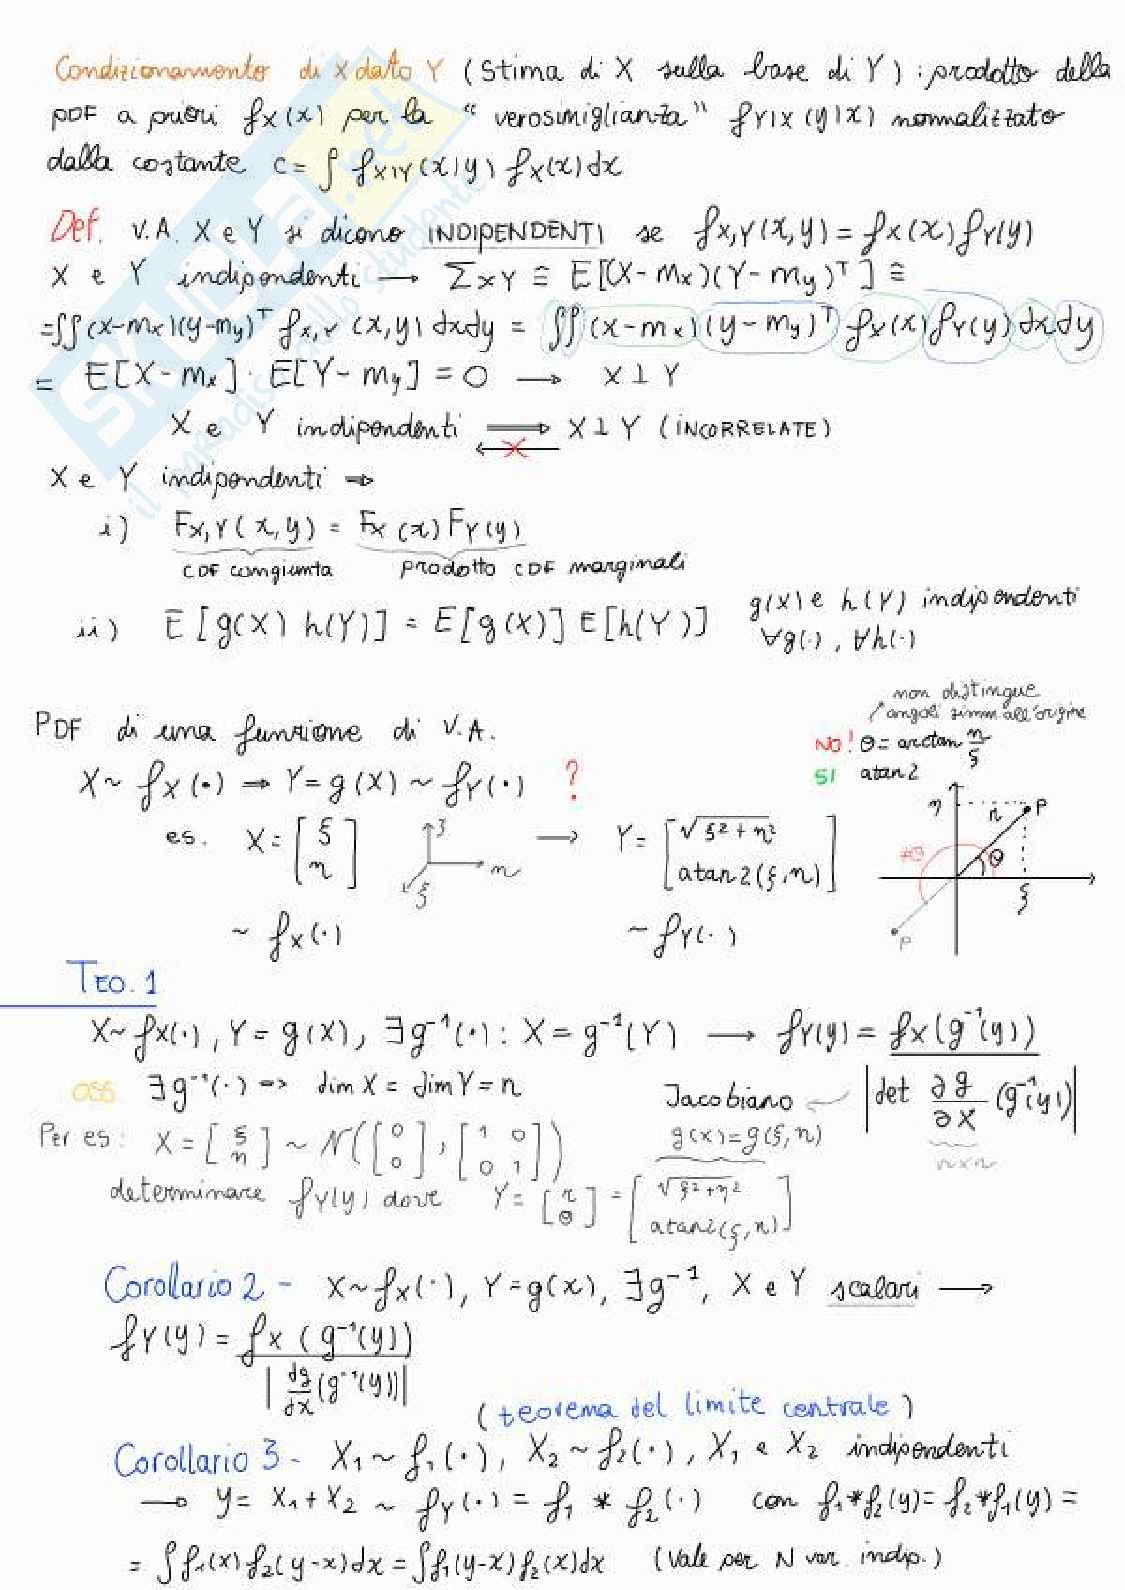 Condizionamento di X dato Y (Stima di X sulla base di Y) : prodotto della
PDF a priori fX(x) per la "verosimiglianza" fY|X(y|x) normalizzato
dalla costante c = ∫ fX|Y(x|y) fX(x)dx
Def. V.A. X e Y si dicono INDIPENDENTI se fX,Y(x,y) = fX(x) fY(y)
X e Y indipendenti → ΣXY ≙ E[(X-mx)(Y-my)ᵀ] ≙
=∫∫(x-mx)(y-my)ᵀ fX,Y(x,y) dxdy = ∫∫(x-mx)(y-my)ᵀ fX(x)fY(y)dxdy
= E[X-mx]·E[Y-my] = 0 → X⊥Y
X e Y indipendenti ⟹ X⊥Y (INCORRELATE)
X e Y indipendenti ⇒
i) FX,Y(x,y) = FX(x) FY(y)
CDF congiunta prodotto CDF marginali
ii) E[g(X) h(Y)] = E[g(X)] E[h(Y)] g(X) e h(Y) indipendenti
∀g(·), ∀h(·)
non distingue
angoli simm all'origine
PDF di una funzione di V.A.
NO! θ = arctan η/ξ
SI atan2
X ~ fX(·) ⇒ Y = g(X) ~ fY(·) ?
es. X = [ξ η] → Y = [√ξ²+η² atan2(ξ,η)]
~ fX(·) ~ fY(·)
3 η ξ
η r P ≠θ θ ξ P
TEO. 1
X~fX(·), Y = g(X), ∃g⁻¹(·) : X = g⁻¹(Y) → fY(y) = fX(g⁻¹(y)) / |det ∂g/∂X (g⁻¹(y))|
OSS ∃g⁻¹(·) => dim X = dim Y = n
Jacobiano
n×n
Per es: X = [ξ η] ~ N([0 0], [1 0 0 1])
g(x) = g(ξ,η)
determinare fY(y) dove Y = [r θ] = [√ξ²+η² atan2(ξ,η)]
Corollario 2 - X~fX(·), Y=g(x), ∃g⁻¹, X e Y scalari →
fY(y) = fX(g⁻¹(y)) / |dg/dx (g⁻¹(y))|
(teorema del limite centrale)
Corollario 3 - X₁~f₁(·), X₂~f₂(·), X₁ e X₂ indipendenti
→ y = X₁+X₂ ~ fY(·) = f₁ * f₂(·) con f₁*f₂(y) = f₂*f₁(y) =
= ∫f₁(x) f₂(y-x)dx = ∫f₁(y-x) f₂(x)dx (Vale per N var. indip.)
SKUOLA.net
il paradiso dello studente